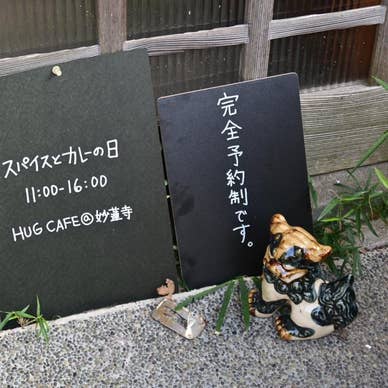 スパイスとカレーの日
11:00-16:00
HUG CAFE@妙蓮寺
完全予約制です。